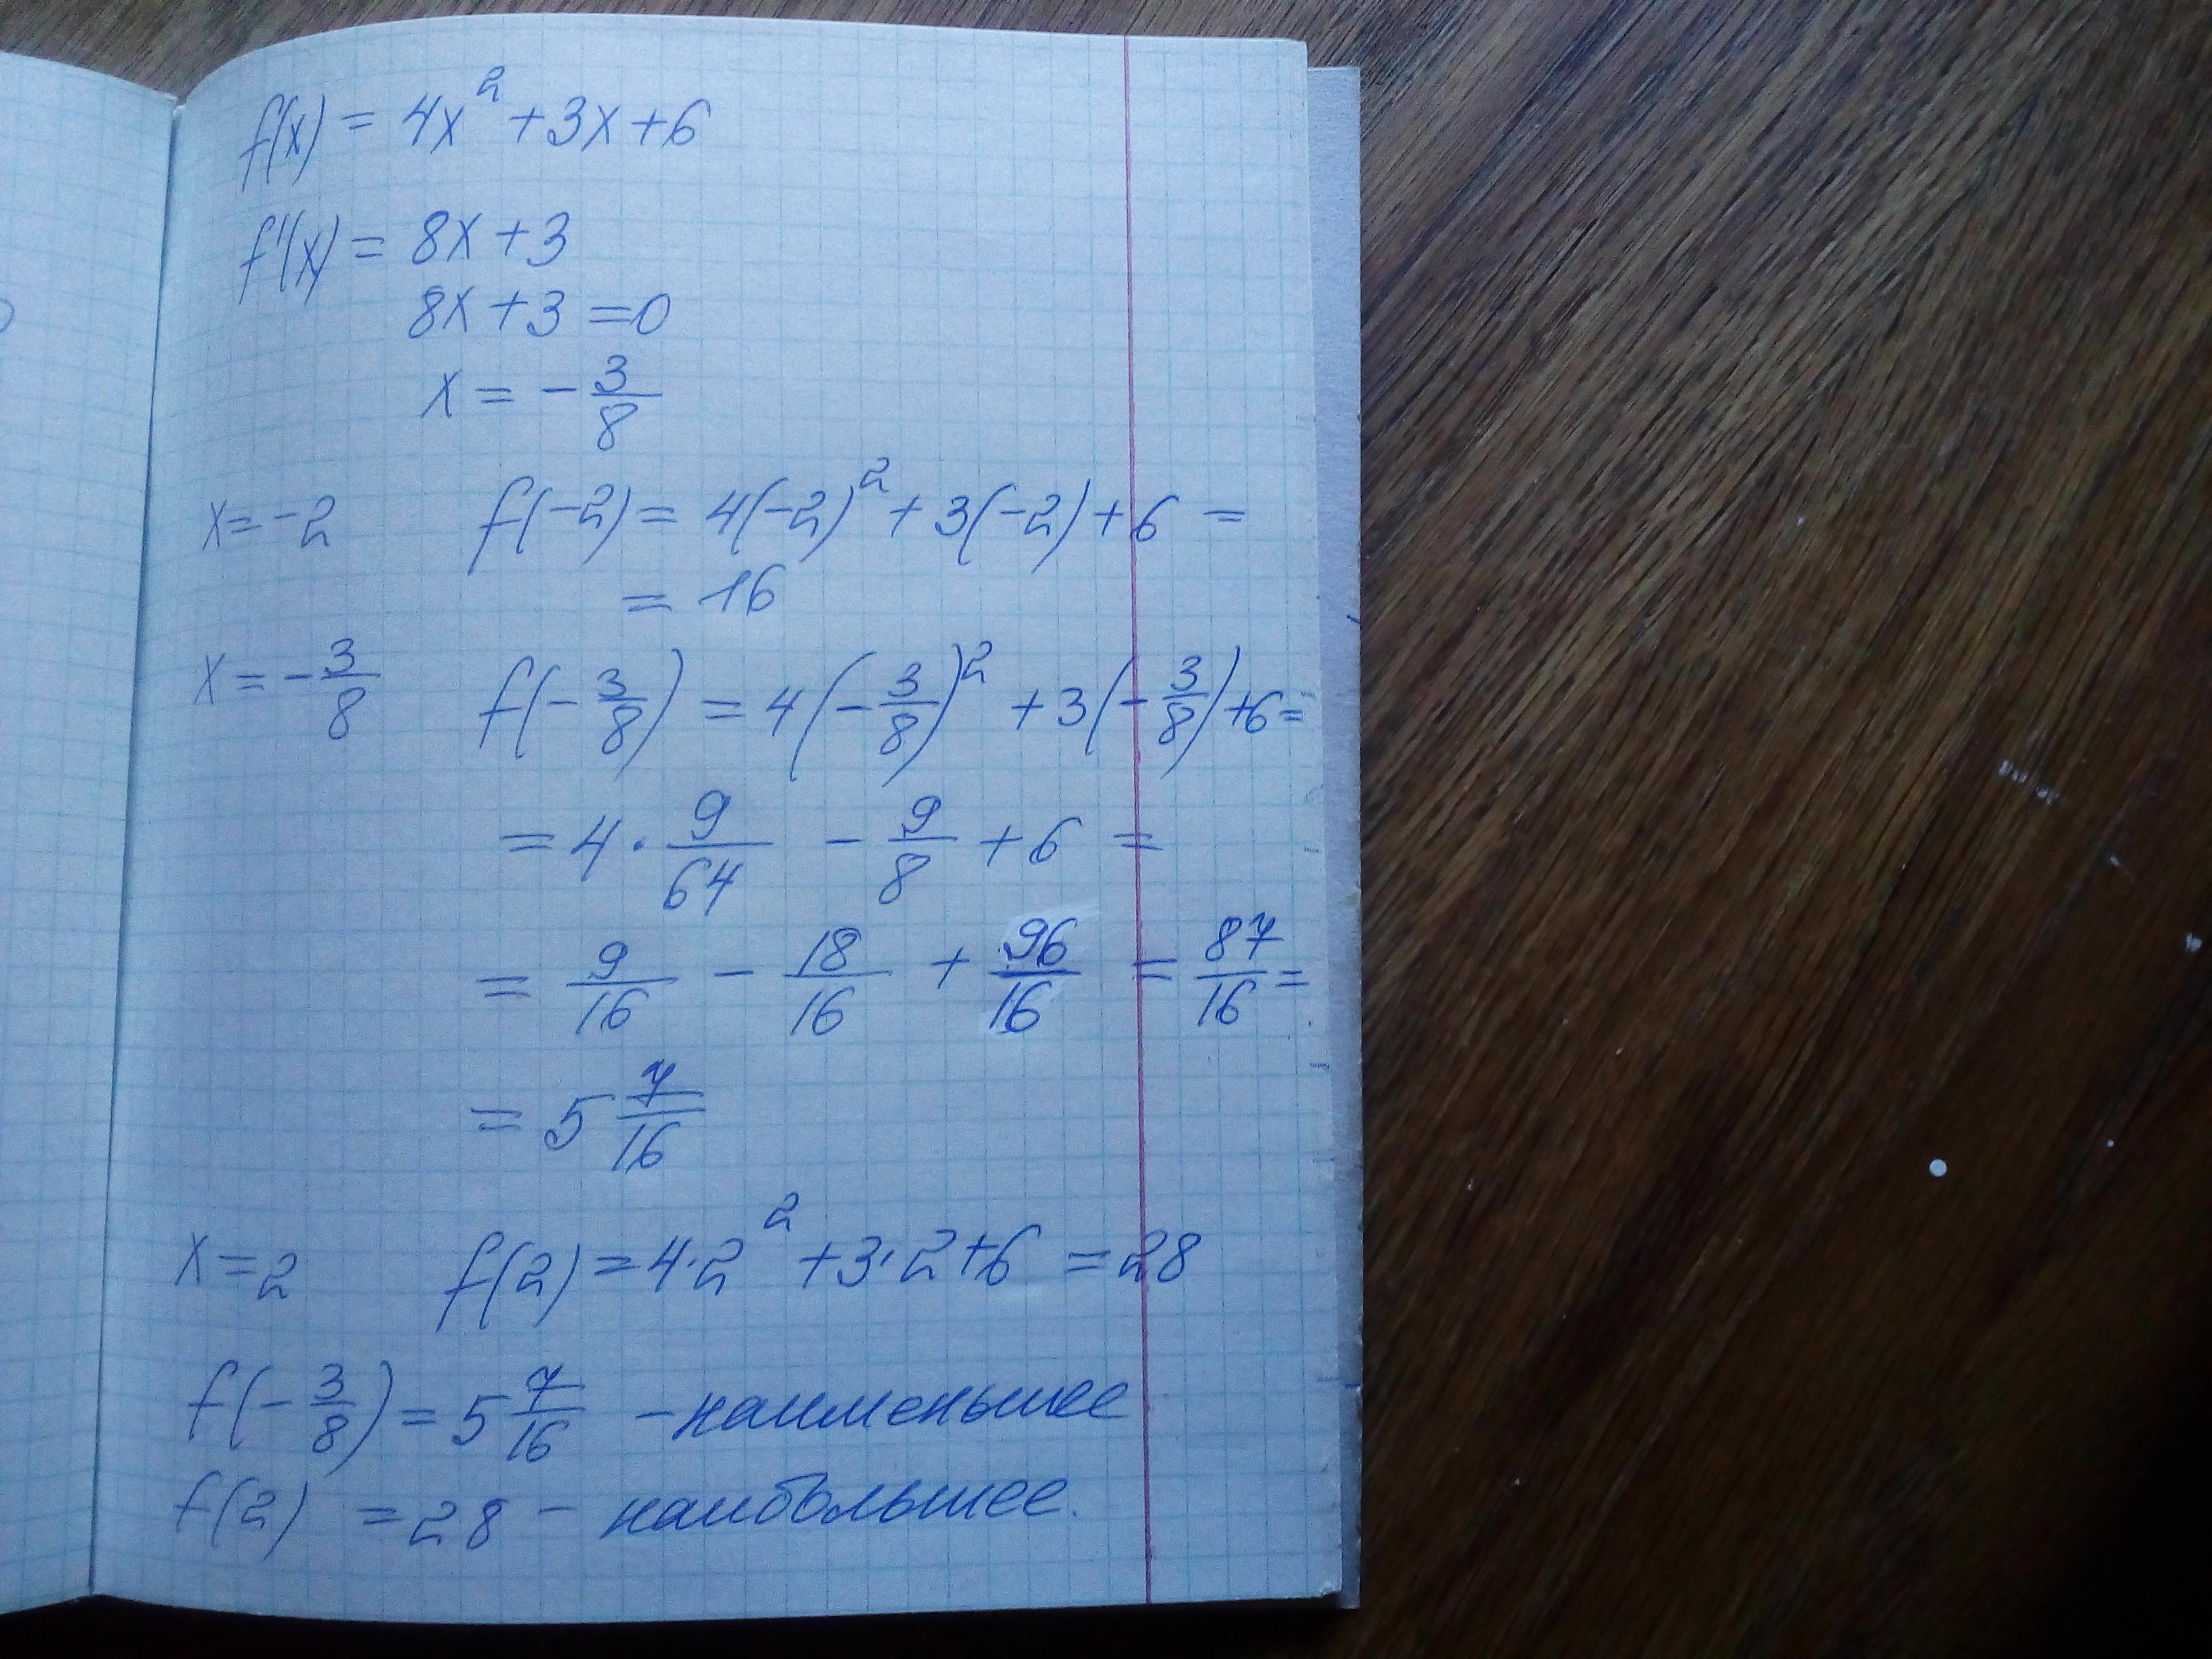 f(x) = 4x² + 3x + 6
f'(x) = 8x + 3
8x + 3 = 0
x = - 3/8
x = -2 f(-2) = 4(-2)² + 3(-2) + 6 =
= 16
x = - 3/8 f(- 3/8) = 4(- 3/8)² + 3(- 3/8) + 6 =
= 4 · 9/64 - 9/8 + 6 =
= 9/16 - 18/16 + 96/16 = 87/16 =
= 5 7/16
x = 2 f(2) = 4·2² + 3·2 + 6 = 28
f(- 3/8) = 5 7/16 - наименьшее
f(2) = 28 - наибольшее.